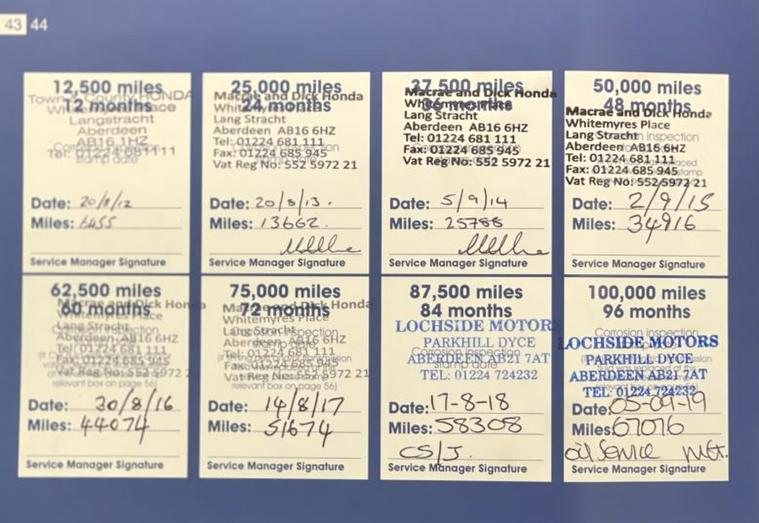 43 44
12,500 miles
12 months
Town & County HONDA
Whitemyres Place
Langstracht
Aberdeen
AB16 1HZ
Tel: 01224 681111
Date: 20/8/12
Miles: 6455
Service Manager Signature
25,000 miles
24 months
Macrae and Dick Honda
Whitemyres Place
Lang Stracht
Aberdeen AB16 6HZ
Tel: 01224 681 111
Fax: 01224 685 945
Vat Reg No: 552 5972 21
Date: 20/8/13.
Miles: 13662.
Service Manager Signature
37,500 miles
36 months
Macrae and Dick Honda
Whitemyres Place
Lang Stracht
Aberdeen AB16 6HZ
Tel: 01224 681 111
Fax: 01224 685 945
Vat Reg No: 552 5972 21
Date: 5/9/14
Miles: 25788
Service Manager Signature
50,000 miles
48 months
Macrae and Dick Honda
Whitemyres Place
Lang Stracht
Aberdeen AB16 6HZ
Tel: 01224 681 111
Fax: 01224 685 945
Vat Reg No: 552 5972 21
Date: 2/9/15
Miles: 34916
Service Manager Signature
62,500 miles
60 months
Macrae and Dick Honda
Whitemyres Place
Lang Stracht
Aberdeen AB16 6HZ
Tel: 01224 681 111
Fax: 01224 685 945
Vat Reg No: 552 5972 2
relevant box on page 56)
Date: 30/8/16
Miles: 44074
Service Manager Signature
75,000 miles
72 months
Macrae and Dick Honda
Whitemyres Place
Lang Stracht
Aberdeen AB16 6HZ
Tel: 01224 681 111
Fax: 01224 685 945
Vat Reg No: 552 5972 21
relevant box on page 56)
Date: 14/8/17
Miles: 51674
Service Manager Signature
87,500 miles
84 months
LOCHSIDE MOTORS
PARKHILL DYCE
ABERDEEN AB21 7AT
TEL: 01224 724232
Corrosion inspection
stamp date
Date: 17-8-18
Miles: 58308
CS/J.
Service Manager Signature
100,000 miles
96 months
Corrosion inspection
LOCHSIDE MOTORS
PARKHILL DYCE
ABERDEEN AB21 7AT
TEL: 01224 724232
Date: 05-09-19
Miles: 67076
oil Service
Service Manager Signature